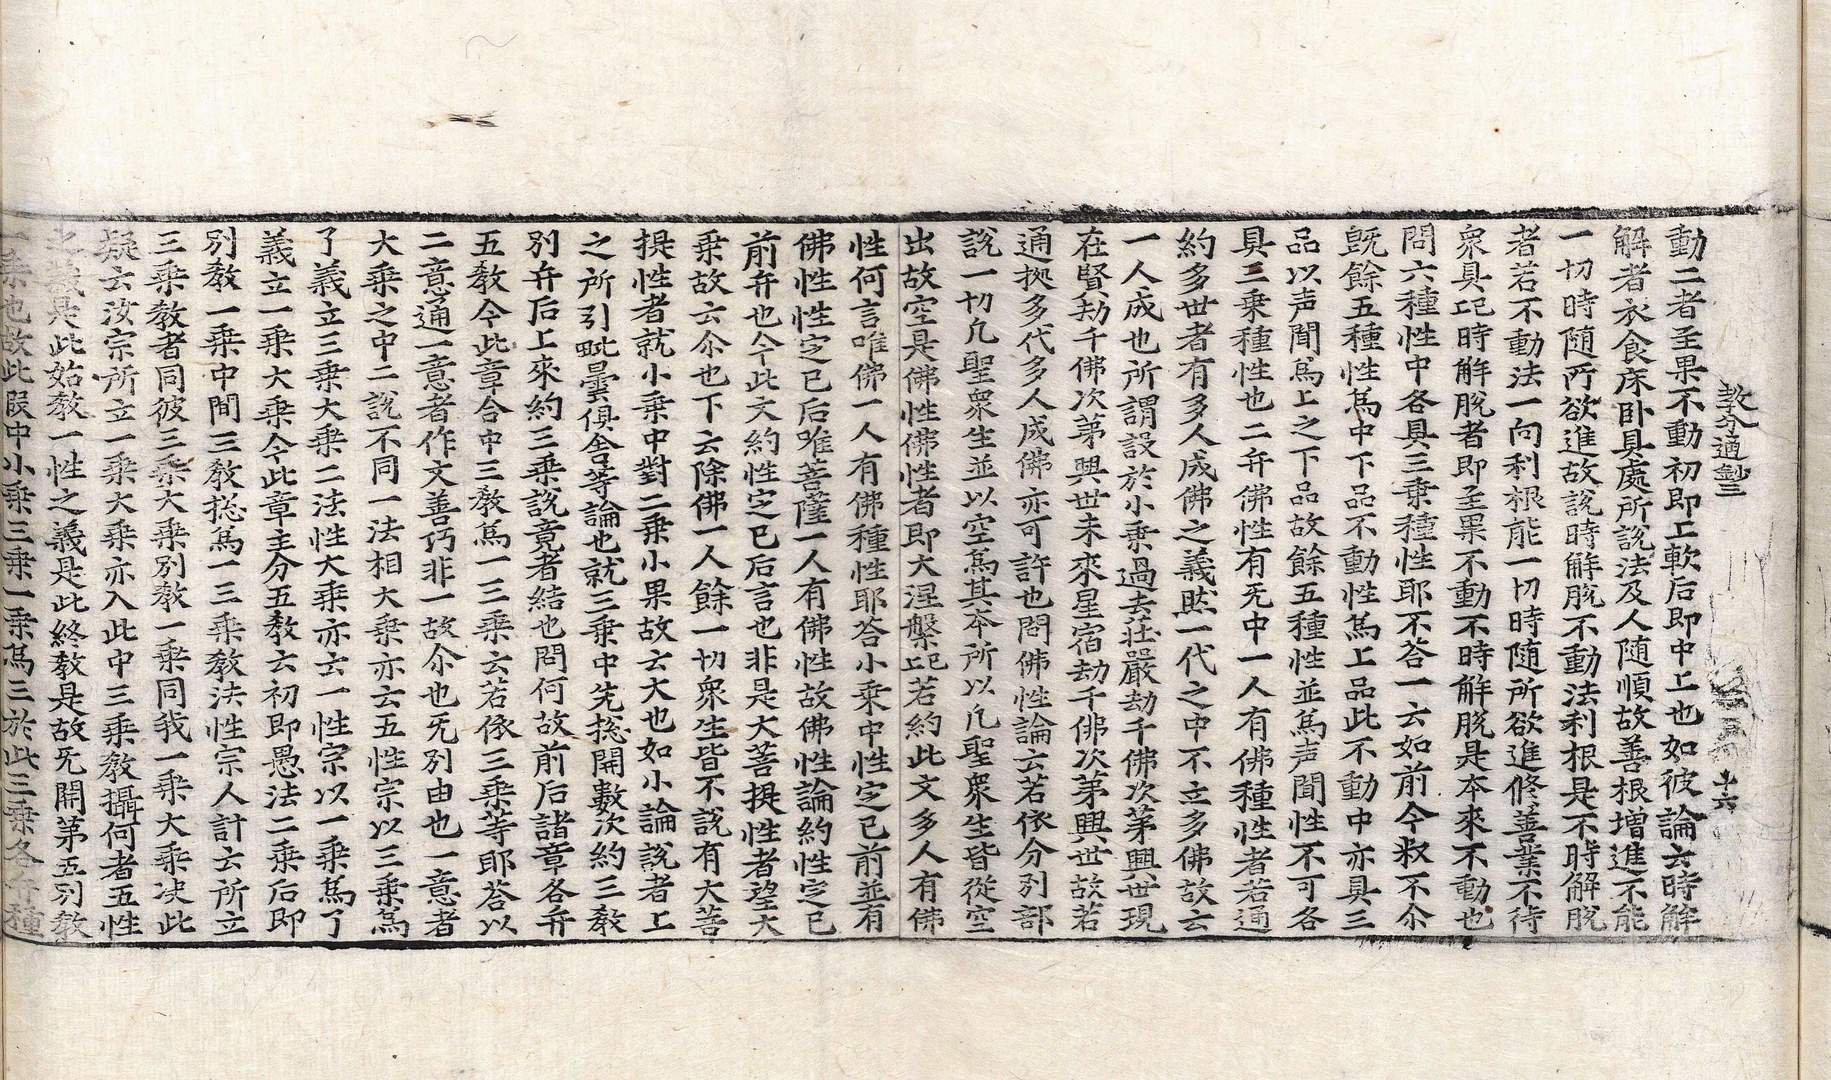 教分通鈔三　十六
動二者至果不動初即上軟后即中上也如彼論云時解
解者衣食床卧具處所說法及人随順故善根增進不能
一切時随所欲進故說時解脫不動法利根是不時解脫
者若不動法一向利根能一切時随所欲進修善業不待
衆具記時解脫者即至果不動不時解脫是本來不動也
問六種性中各具三乗種性耶不荅一云如前今叙不尒
旣餘五種性爲中下品不動性爲上品此不動中亦具三
品以声聞爲上之下品故餘五種性並爲声聞性不可各
具三乗種性也二弁佛性有旡中一人有佛種性者若通
約多世者有多人成佛之義然一代之中不立多佛故云
一人成也所謂設於小乗過去荘嚴劫千佛次苐興世現
在賢劫千佛次苐興世未來星宿劫千佛次苐興世故若
通拠多代多人成佛亦可許也問佛性論云若依分別部
說一切凢聖衆生並以空爲其本所以凢聖衆生皆從空
出故空是佛性佛性者即大涅槃記若約此文多人有佛
性何言唯佛一人有佛種性耶荅小乗中性定已前並有
佛性性定已后唯菩薩一人有佛性故佛性論約性定已
前弁也今此文約性定已后言也非是大菩提性者望大
乗故云尒也下云除佛一人餘一切衆生皆不說有大菩
提性者就小乗中對二乗小果故云大也如小論說者上
之所引毗曇俱舍等論也就三乗中先揔開數次約三教
別弁后上來約三乗說竟者結也問何故前后諸章各弁
五教今此章合中三教爲一三乗云若依三乗等耶荅以
二意通一意者作文善巧非一故尒也旡別由也一意者
大乗之中二說不同一法相大乗亦云五性宗以三乗爲
了義立三乗大乗二法性大乗亦云一性宗以一乗爲了
義立一乗大乗今此章主分五教云初即愚法二乗后即
別教一乗中間三教揔爲一三乗教法性宗人計云所立
三乗教者同彼三乗大乗別教一乗同我一乗大乗决此
疑云汝宗所立一乗大乗亦入此中三乗教攝何者五性
之義是此始教一性之義是此終教是故旡開第五別教
一乗也故此叚中小乗三乗一乗爲三於此三乗各弁種